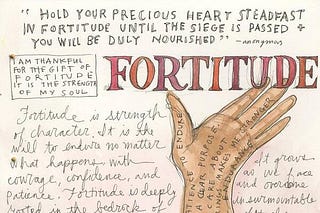 "HOLD YOUR PRECIOUS HEART STEADFAST
IN FORTITUDE UNTIL THE SIEGE IS PASSED +
YOU WILL BE DULY NOURISHED" -anonymous
I AM THANKFUL
FOR THE GIFT OF
FORTITUDE
IT IS THE STRENGTH
OF MY SOUL
FORTITUDE
Fortitude is strength
of character. It is the
will to endure no matter
what happens with
courage, confidence, and
patience. Fortitude is deeply
rooted in the bedrock of
PATIENCE TO ENDURE
A CLEAR PURPOSE
STRONGER
It grows
as we face
and overcome
insurmountable